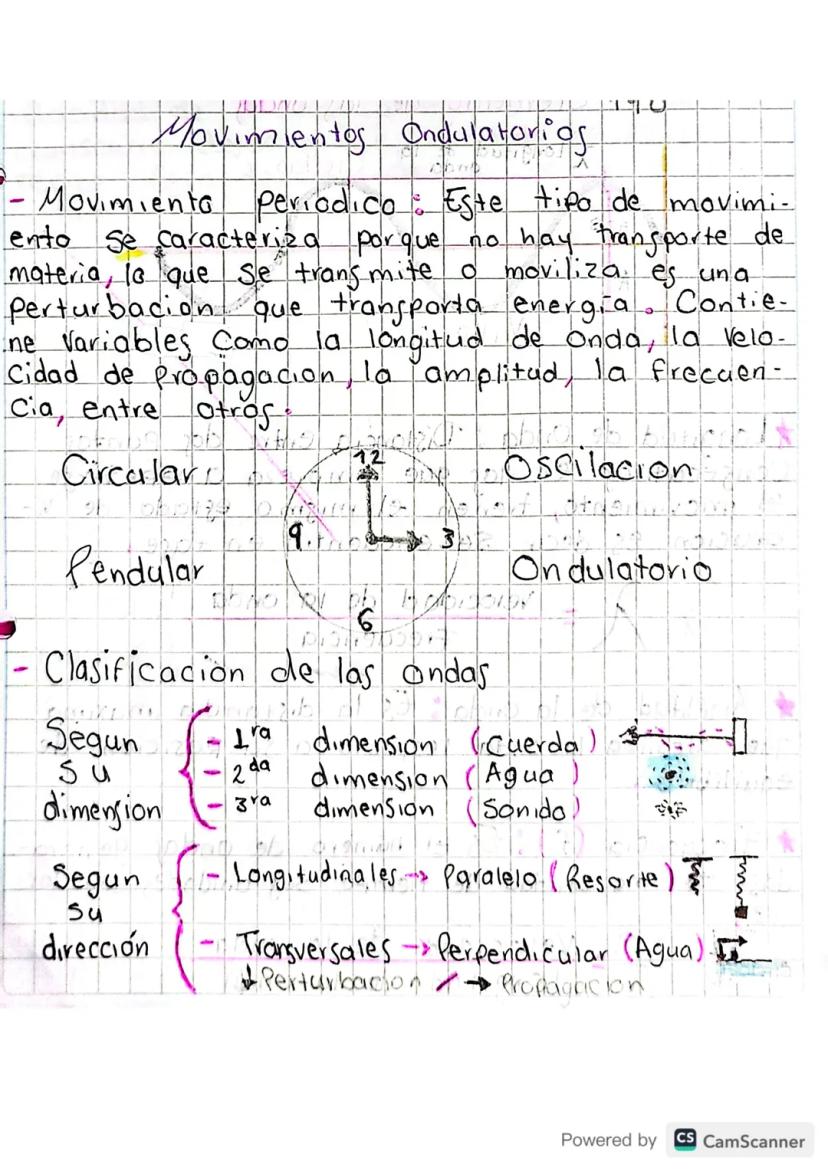 Movimientos Ondulatorios
- Movimiento periodico: Este tipo de movimi-
ento se caracteriza porque no hay transporte de
materia, lo que se transmite o moviliza es una
perturbacion que transporta energía. Contie-
ne variables como la longitud de onda, la velo-
cidad de propagacion, la amplitud, la frecuen-
cia, entre otros.
Circular
12
Oscilacion
9
3
Pendular
Ondulatorio
6
- Clasificacion de las ondas
Segun
su
dimension
- 1ra dimension (Cuerda)
- 2da dimension (Agua)
- 3ra dimension (Sonido)
Segun
su
dirección
- Longitudinales → Paralelo (Resorte)
- Transversales → Perpendicular (Agua)
↓ Perturbacion / → Propagacion
Powered by CS CamScanner